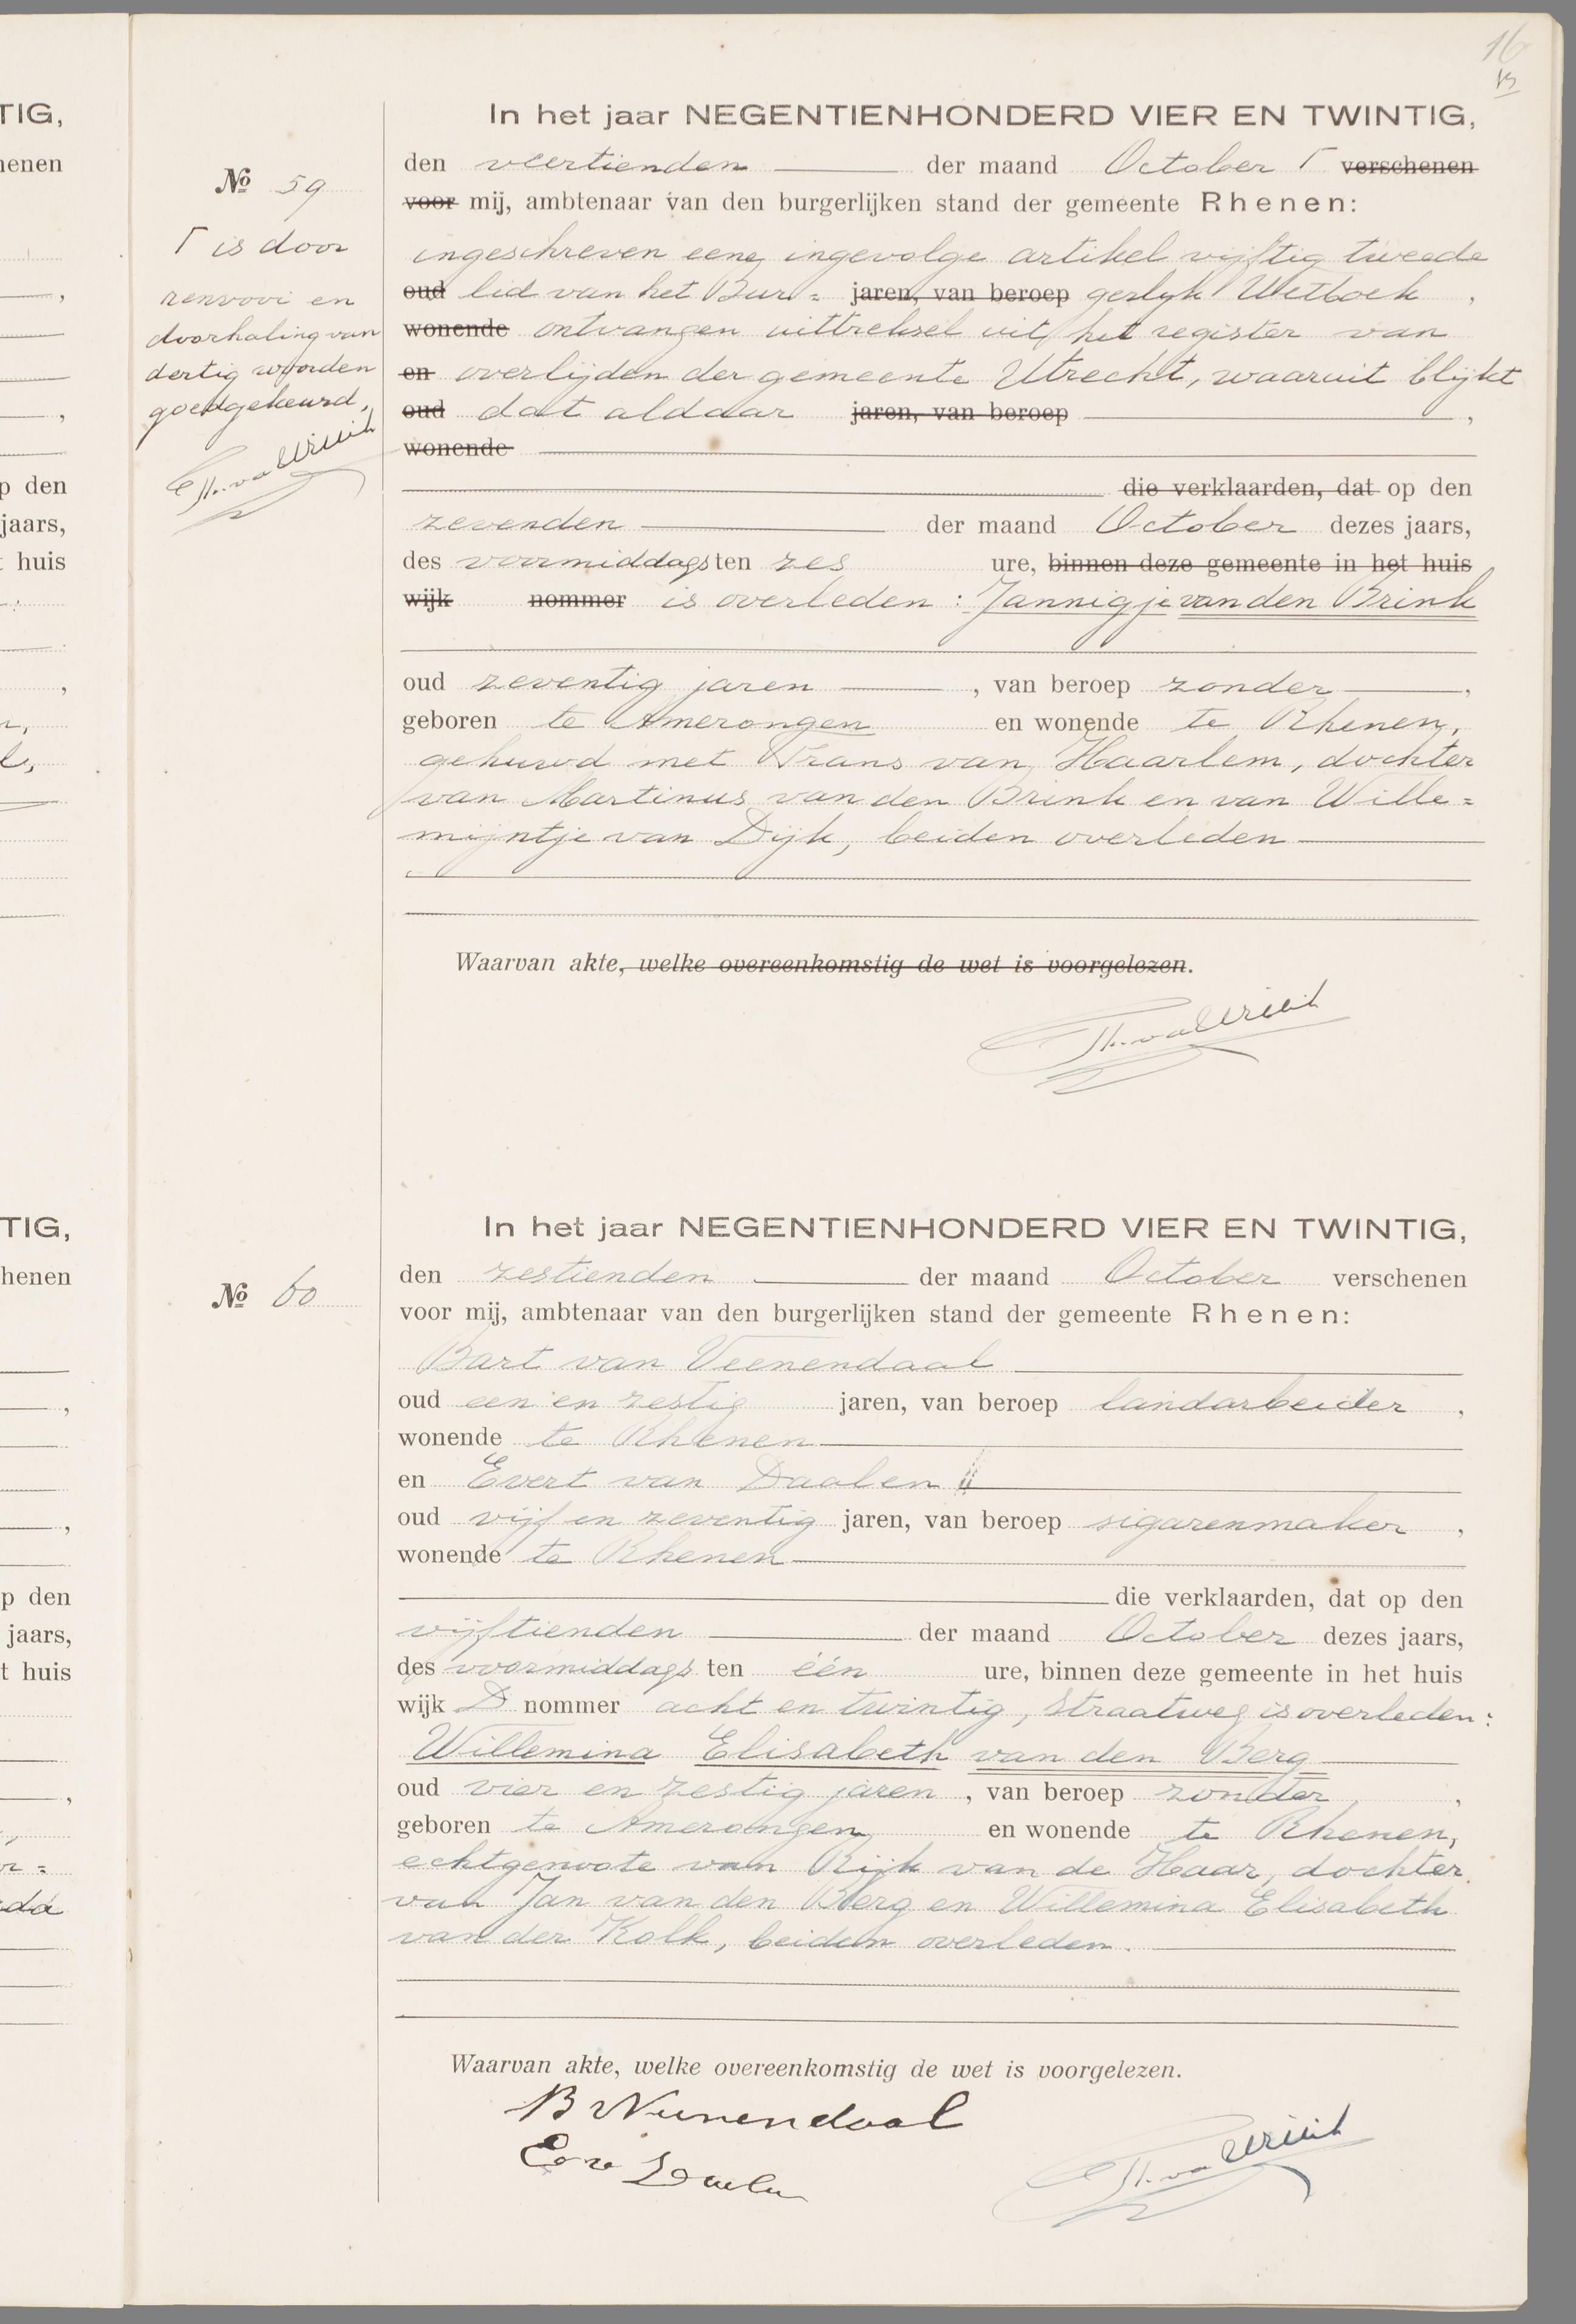 16
B
In het jaar NEGENTIENHONDERD VIER EN TWINTIG,
den veertienden der maand October Γ verschenen
voor mij, ambtenaar van den burgerlijken stand der gemeente Rhenen:
ingeschreven eene ingevolge artikel vijftig tweede
oud lid van het Bur= jaren, van beroep gerlijk Wetboek ,
wonende ontvangen uittreksel uit het register van
en overlijden der gemeente Utrecht, waaruit blijkt
oud dat aldaar jaren, van beroep ,
wonende
die verklaarden, dat op den
zevenden der maand October dezes jaars,
des voormiddags ten zes ure, binnen deze gemeente in het huis
wijk nommer is overleden: Jannigje van den Brink
oud zeventig jaren , van beroep zonder ,
geboren te Amerongen en wonende te Rhenen,
gehuwd met Frans van Haarlem, dochter
van Martinus van den Brink en van Wille=
mijntje van Dijk, beiden overleden
Waarvan akte, welke overeenkomstig de wet is voorgelezen.
No 59
Γ is door
renvooi en
doorhaling van
dertig woorden
goedgekeurd,
In het jaar NEGENTIENHONDERD VIER EN TWINTIG,
No 60
den zestienden der maand October verschenen
voor mij, ambtenaar van den burgerlijken stand der gemeente Rhenen:
Bart van Veenendaal
oud een en zestig jaren, van beroep landarbeider ,
wonende te Rhenen
en Evert van Daalen
oud vijf en zeventig jaren, van beroep sigarenmaker ,
wonende te Rhenen
die verklaarden, dat op den
vijftienden der maand October dezes jaars,
des voormiddags ten één ure, binnen deze gemeente in het huis
wijk D nommer acht en twintig, Straatweg is overleden:
Willemina Elisabeth van den Berg
oud vier en zestig jaren , van beroep zonder ,
geboren te Amerongen en wonende te Rhenen,
echtgenoote van Rijk van de Haar, dochter
van Jan van den Berg en Willemina Elisabeth
van der Kolk, beiden overleden.
Waarvan akte, welke overeenkomstig de wet is voorgelezen.
TIG,
henen
p den
jaars,
t huis
TIG,
henen
p den
jaars,
t huis